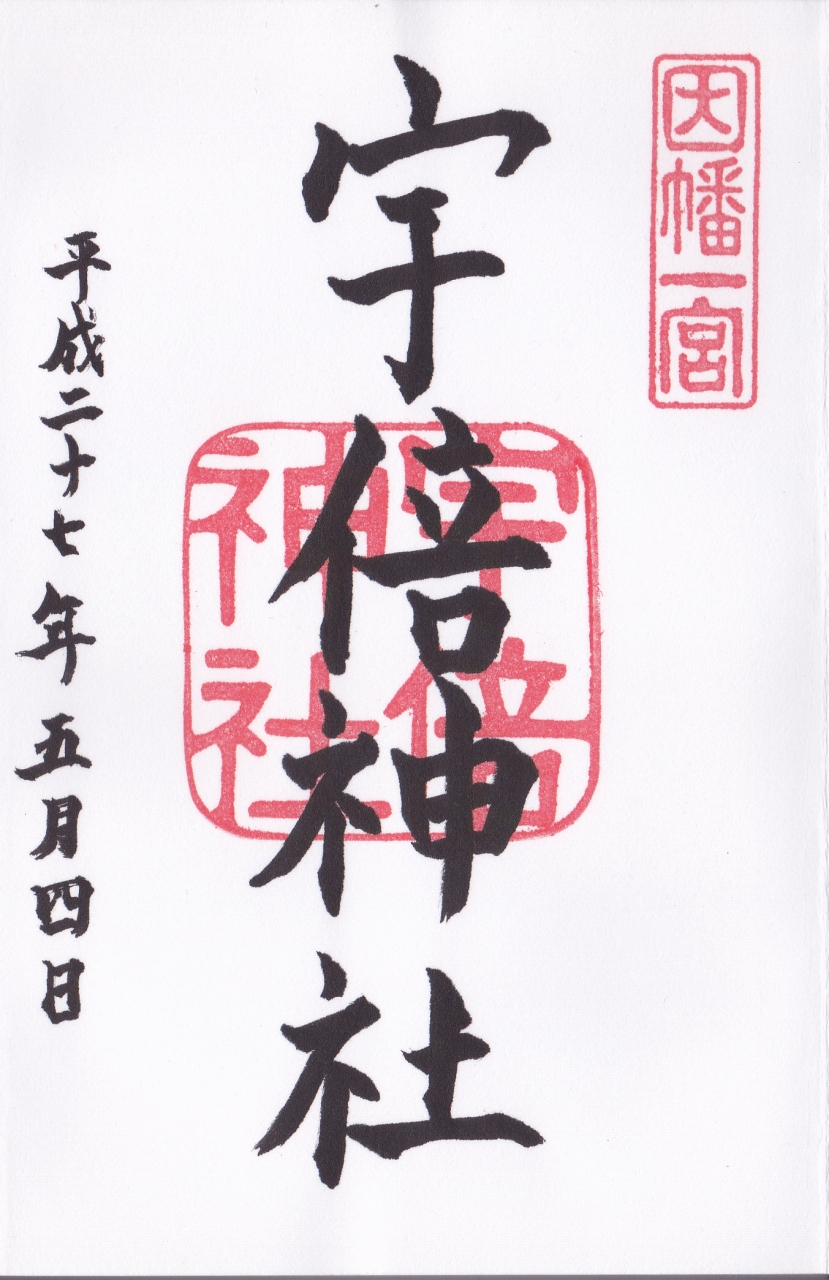 因幡一宮
宇倍神社
宇倍
神社
平成二十七年五月四日